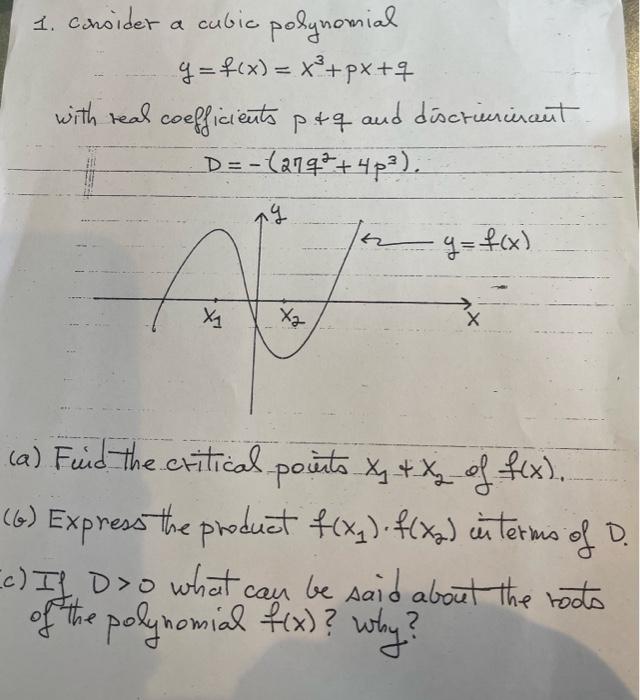 1. Consider a cubic polynomial
y = f(x) = x³ + px + q
with real coefficients p & q and discriminant
D = -(27q² + 4p³).
y
y = f(x)
x₁ x₂ x
(a) Find the critical points x₁ & x₂ of f(x).
(b) Express the product f(x₁)·f(x₂) in terms of D.
c) If D>0 what can be said about the roots
of the polynomial f(x)? Why?